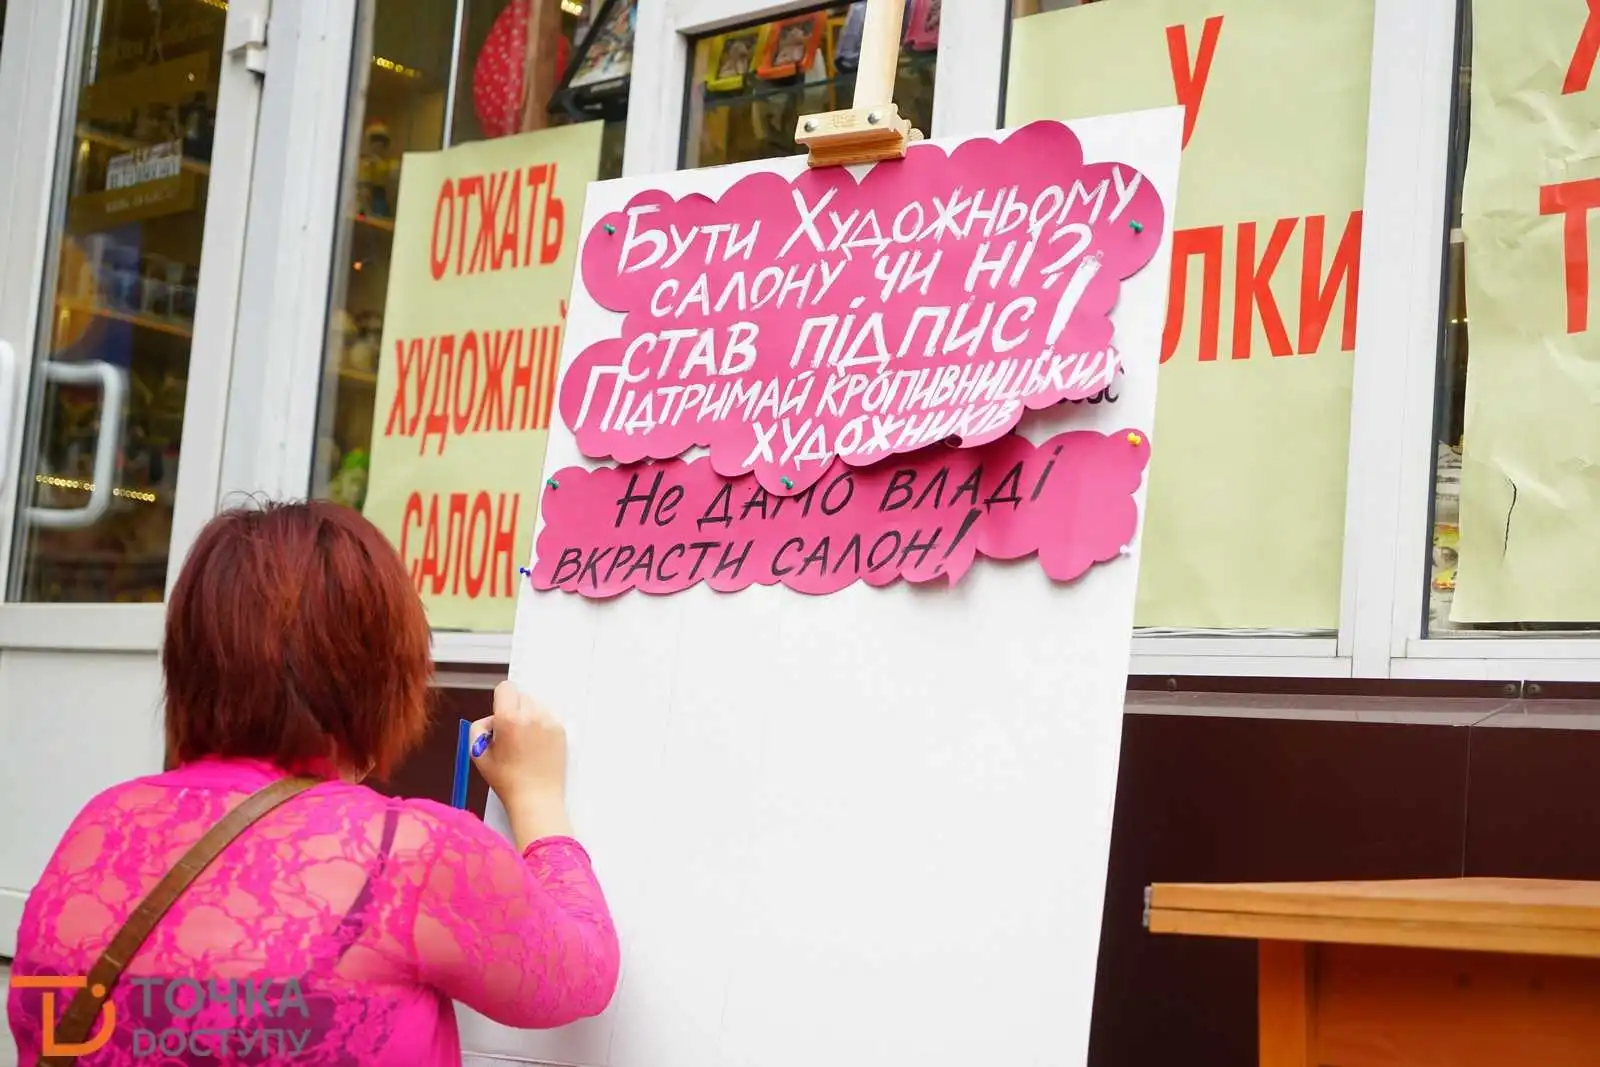 ОТЖАТЬ
ХУДОЖНІЙ
САЛОН
Бути Художньому
салону чи ні?
Став підпис!
Підтримай кропивницьких
художників
Не дамо владі
вкрасти салон!
У
ЛКИ
ТОЧКА
ДОСТУПУ